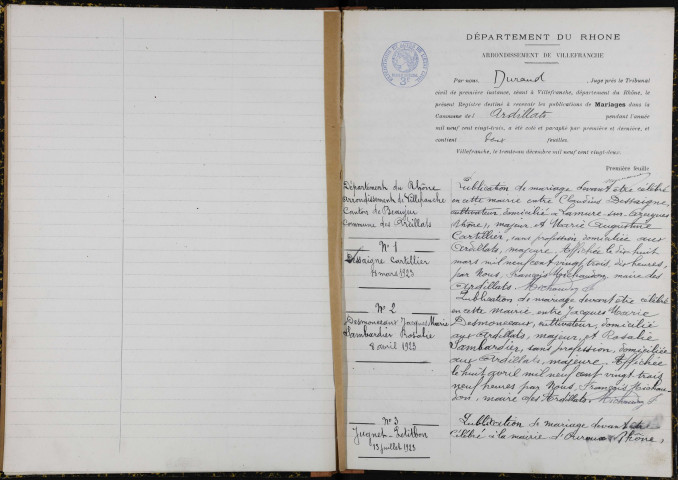 DÉPARTEMENT DU RHONE
ARRONDISSEMENT DE VILLEFRANCHE
Par nous, Durand, Juge près le Tribunal
civil de première instance, séant à Villefranche, département du Rhône, le
présent Registre destiné à recevoir les publications de Mariages dans la
Commune de Ardillats pendant l'année
mil neuf cent vingt-trois, a été coté et paraphé par première et dernière, et
contient feuilles.
Villefranche, le trente-un décembre mil neuf cent vingt-deux.
Première feuille
Département du Rhône
Arrondissement de Villefranche
Canton de Beaujeu
Commune des Ardillats
N° 1
Dessaigne Cartillier
mars 1923
Publication de mariage devant être célébré
en cette mairie entre Claudius Dessaigne,
cultivateur domicilié à Lamure-sur-Azergues
(Rhône), majeur, et Marie Augustine
Cartillier, sans profession domiciliée aux
Ardillats, majeure. Affichée le dix huit
mars mil neuf cent vingt trois, dix heures,
par Nous, François Michaudon, maire des
Ardillats. Michaudon F
N° 2
Desmonceaux Jacques Marie
Lambardier Rosalie
8 avril 1923
Publication de mariage devant être célébré
en cette mairie, entre Jacques Marie
Desmonceaux, cultivateur, domicilié
aux Ardillats, majeur, et Rosalie
Lambardier, sans profession, domiciliée
aux Ardillats, majeure. Affichée
le huit avril mil neuf cent vingt trois
neuf heures par Nous, François Michau-
don, maire des Ardillats. Michaudon F
N° 3
Jugnet Petitbon
15 juillet 1923
Publication de mariage devant être
célébré à la mairie d' (Rhône)